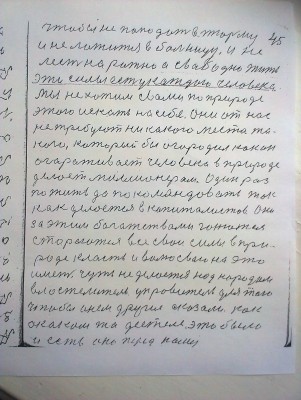 чтобы не попадат в тюрму 45
и не ложится в балницу, и не
лест на ражно а свабодно жить
это силы есть у каждого человека.
Мы не хотим с вами по природе
этого искать на себе. Они от нас
не требуют никакого места та-
кого, который бы огородил как он
огараживает человека в природе
делает миллионерам. Один раз
пожить да покомандовать так
как делается в капиталистов. Они
за этим багатствам гонются
стараются все свои силы в при-
роде класть и волосван на это
иметь чуть не делается над народам
властелителем управителем для того
чтобы о нем другия сказали. как
о каком то деятеле это было
и есть оно перед нами